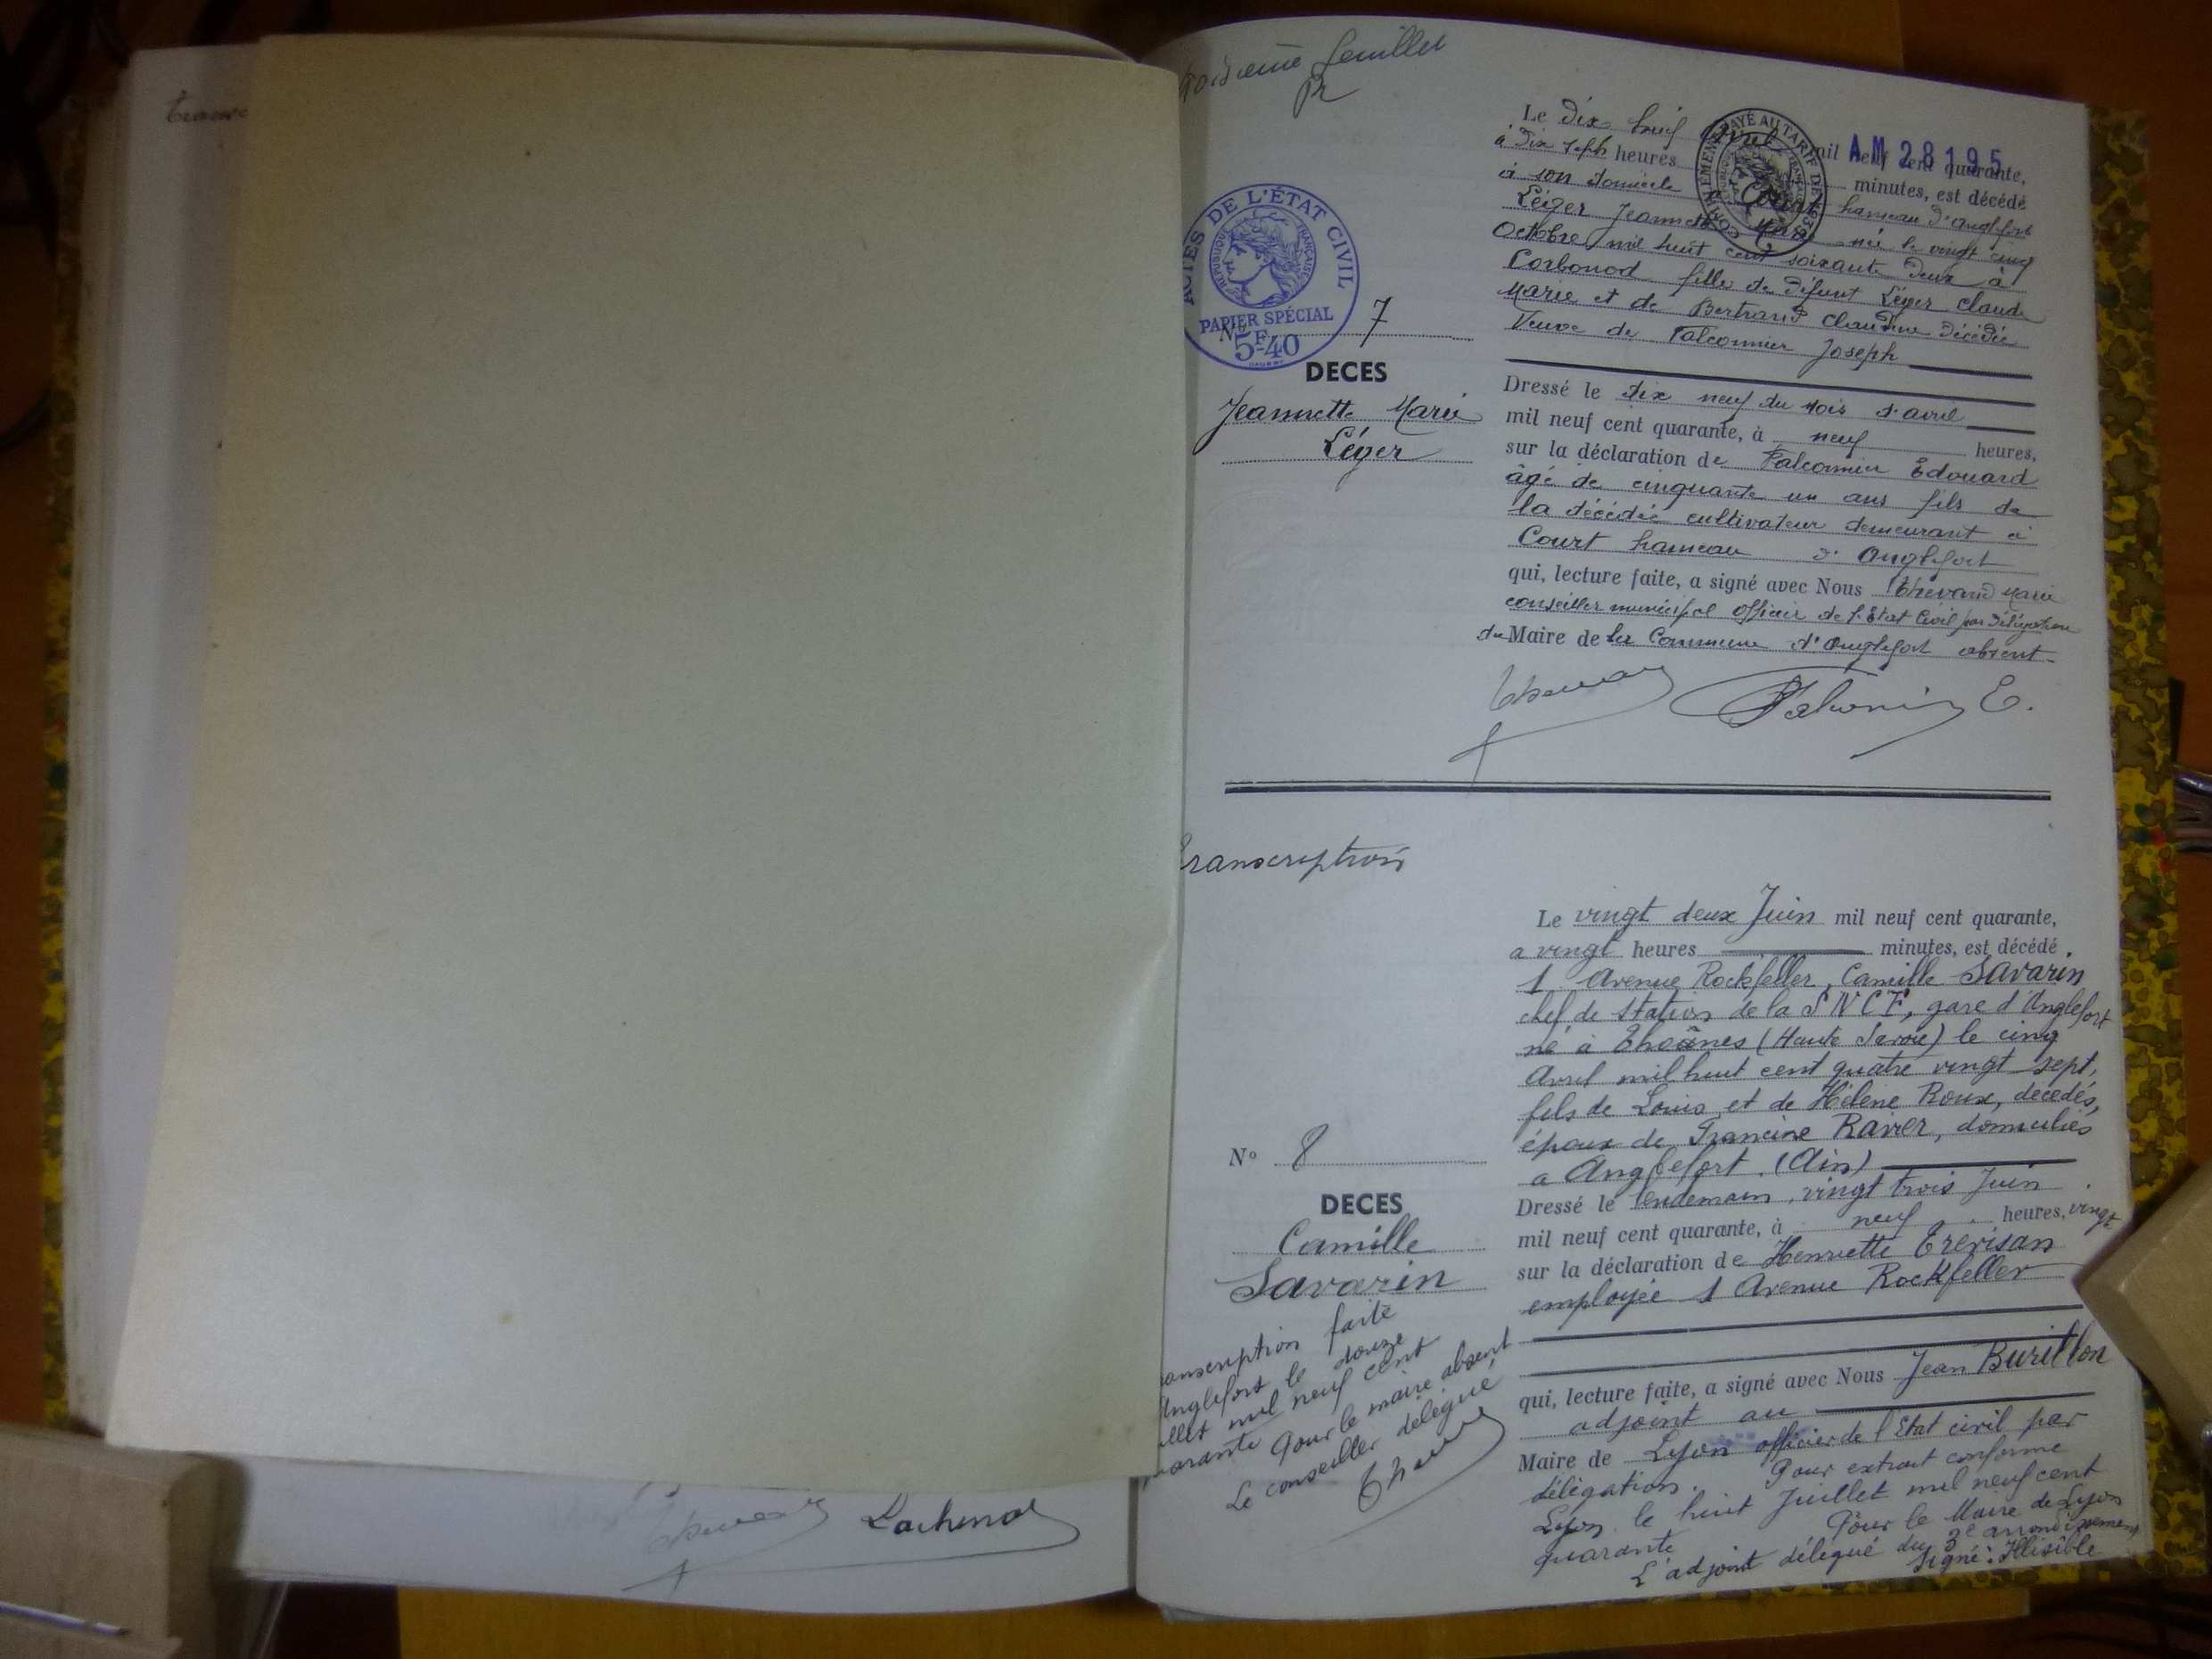 troisième feuillet
Le dix huit avril mil neuf cent quarante,
AM 28195
à Dix sept heures minutes, est décédé
à son domicile à Court hameau d'Anglefort
Léger Jeannette Marie née le vingt cinq
Octobre mil huit cent soixante deux à
Corbonod fille de défunt Léger Claude
Marie et de Bertrand Claudine décédée
Veuve de Falconnier Joseph
ACTES DE L'ÉTAT CIVIL
RÉPUBLIQUE FRANÇAISE
PAPIER SPÉCIAL
5F40
No 7
DECES
Jeannette Marie
Léger
Dressé le dix neuf du mois d'avril
mil neuf cent quarante, à neuf heures,
sur la déclaration de Falconnier Edouard
âgé de cinquante un ans fils de
la décédée cultivateur demeurant à
Court hameau d'Anglefort
qui, lecture faite, a signé avec Nous Thevand Marie
conseiller municipal officier de l'Etat Civil par délégation
du Maire de la Commune d'Anglefort absent
Transcription
Le vingt deux Juin mil neuf cent quarante,
a vingt heures minutes, est décédé
1 Avenue Rockfeller, Camille Savarin
chef de station de la SNCF, gare d'Anglefort
né à Thoänes (Haute Savoie) le cinq
Avril mil huit cent quatre vingt sept,
fils de Louis et de Hélène Roux, décédés,
époux de Francine Ravier, domiciliés
a Anglefort. (Ain)
No 8
DECES
Camille
Savarin
Dressé le lendemain, vingt trois Juin
mil neuf cent quarante, à neuf heures, vingt
sur la déclaration de Henriette Trevisan
employée 1 Avenue Rockfeller
qui, lecture faite, a signé avec Nous Jean Burillon
adjoint au
Maire de Lyon officier de l'Etat civil par
délégation. Pour extrait conforme
Lyon le huit Juillet mil neuf cent
quarante Pour le Maire de Lyon
L'adjoint délégué du 3e arrondissement
Signé: Illisible
anscription faite
Anglefort le douze
illet mil neuf cent
uarante Pour le maire absent
Le conseiller délégué
Lachenal